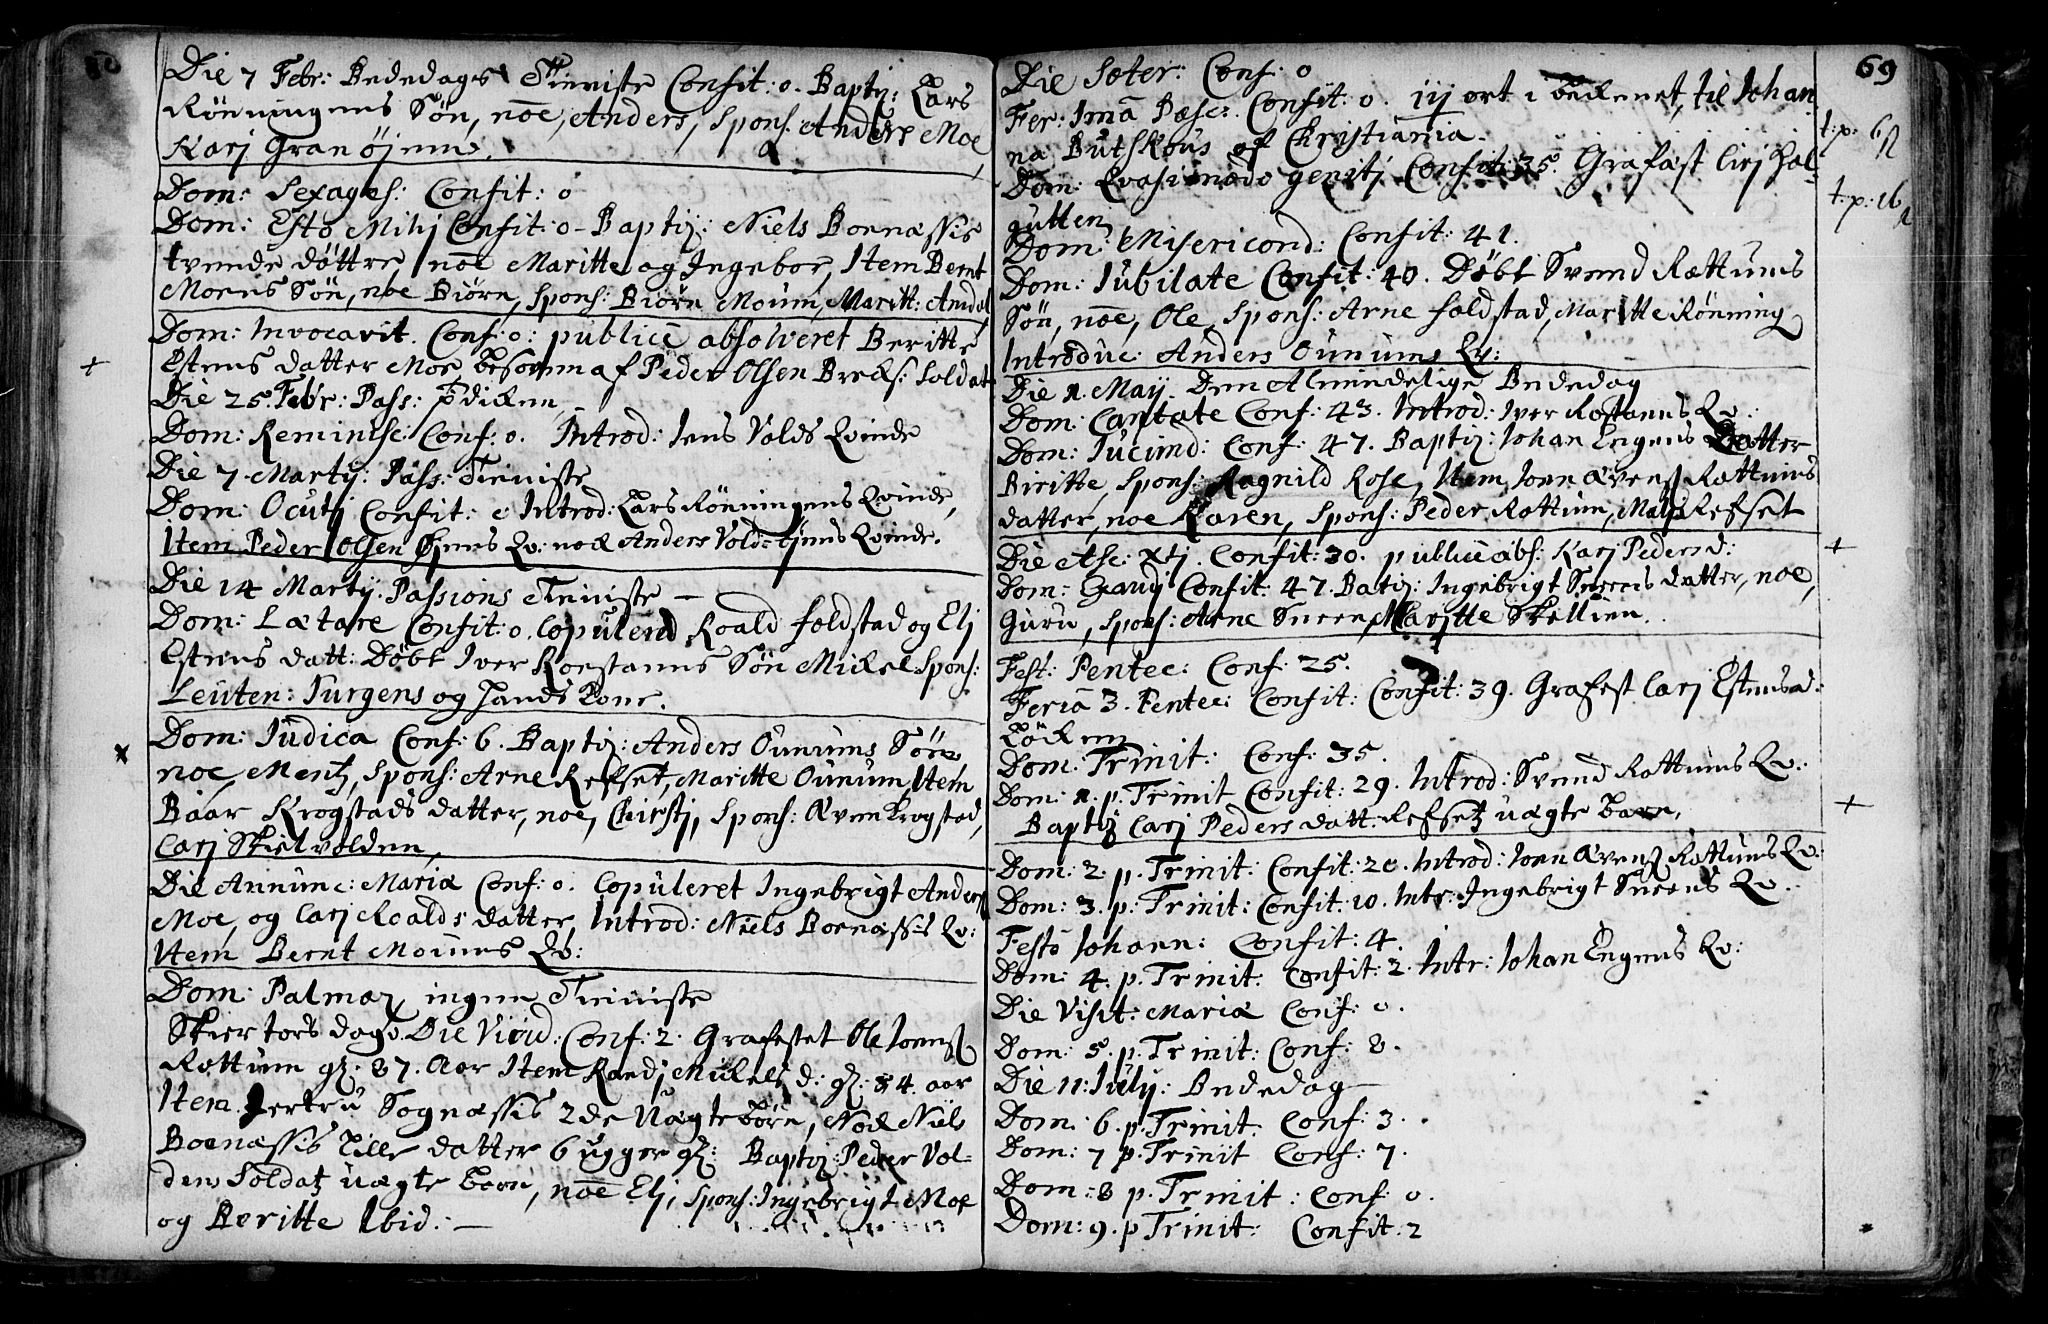 Die 7 Febr: Bededags Tieniste Confit: 0. Baptiz: Lars
Rönningens Sön, noe, Anders, Spons. Anders Moe,
Karj Granöjenn.
Dom: Sexages: Confit: 0
Dom: Esto Mihj Confit: 0 - Baptiz: Niels Boenæssis
tvende döttre, noe Maritte og Ingebor, Item Bernt
Moens Sön, noe Biörn, Spons: Biörn Moum, Maritt: Amdal
Dom: Invocavit. Conf: 0: publicè absolveret Beritte
Estens datter Moe besofven af Peder Olsen Breks: Soldat
Die 25. Febr: Pass: Prediken
Dom: Reminisc: Conf: 0. Introd: Iens Volds Qvinde
Die 7. Martij: Pass: Tieniste
Dom: Oculj Confit: 0 Introd: Lars Rönningens Qvinde,
Item Peder Olsen Öyens Qv: nok Anders Vold-tiens Qvinde.
Die 14 Martij. Passions Tieniste —
Dom: Lætare Confit: 0. Copulerid Roald foldstad og Elj
Estens datt: Döbt Iver Roestanns Sön Mickel Spons:
Leuten: Jurgens og hands Kone.
Dom: Judica Conf: 6. Baptiz: Anders Ounums Sön
noe, Mentz, Spons: Arne Refset, Maritte Ounum, Item
Baar Krogstads datter, noe, Chirstj, Spons: Even Krogstad,
Carj Skielvolden,
Die Annunc: Mariæ Conf: 0. Copuleret Ingebrigt Anders
Moe, og Carj Roalds datter, Introd: Niels Boenæssis Qv:
Item Bernt Moums Qv:
Dom: Palmar, ingen Tieniste
Skiertorsdag Die Virid: Conf: 2. Grafestet Ole Ioens
Rottum gl. 87. Aar Item Randj Mickels d: gl: 84. aar
Item Jertru Sognæssis 2de Uægte börn, Nok Niels
Boenæssis Lille datter 6 uger gl: Baptiz: Peder Vol-
dens Soldat uægte barn, noe Elj, Spons: Ingebrigt Moe
og Beritte Ibid: —
69
Die Seter: Conf: 0
Fer: Imâ Pasc: Confit: 0. iij ort i beckenet, til Johan-
na Butskous af Christiania.
Dom: Qvasimodo genitj Confit: 35. Grafæst Cirj Hal-
gutten
Dom: Misericord: Confit: 41.
Dom: Jubilate Confit: 40. Döbt Svend Rottums
Sön, noe, Ole, Spons: Arne foldstad, Maritte Rönning
Introduc: Anders Ounums Qv:
Die 1. Maij. Den Almindelige Bededag
Dom: Cantate Conf: 43. Introd: Iver Rostanns Qv:
Dom: Jucund: Conf: 47. Baptiz: Johan Engens Datter
Biritte, Spons: Ragnild Rose, Item, Ioen Evens Rottums
datter, noe Karen, Spons: Peder Rottum, Refset
Die Asc: Xtj. Confit: 30. publice abs: Karj Peders d:
Dom: Exaudj Confit: 47. Batiz: Ingebrigt Sneens datter, noe,
Guru, Spons: Arne Sneen, Maritte Skellien.
Fest: Pentec: Conf: 25.
Feriâ 3. Pentec: Confit: Confit: 39. Grafest Carj Estens d:
Löcken
Dom: Trinit: Conf: 35.
Dom: 1. p. Trinit Confit: 29. Introd: Svend Rottums Qv:
Baptiz Carj Peders datt: Refsetz uægte barn,
Dom: 2. p. Trinit: Confit: 20. Introd: Ioen Evens Rottums Qv:
Dom: 3. p: Trinit: Confit: 10. Intr: Ingebrigt Sneens Qv:
Festô Johann: Confit: 4.
Dom: 4. p. Trinit: Confit: 2. Intr: Johan Engens Qv:
Die Visit: Mariæ Conf: 0.
Dom: 5. p. Trinit: Conf: 8.
Die 11: Julij: Bededag
Dom: 6. p. Trinit: Conf: 3.
Dom: 7 p. Trinit Conf: 7.
Dom: 8 p. Trinit: Conf: 0.
Dom: 9. p Trinit: Confit: 2
t: p: 6
t: p: 16